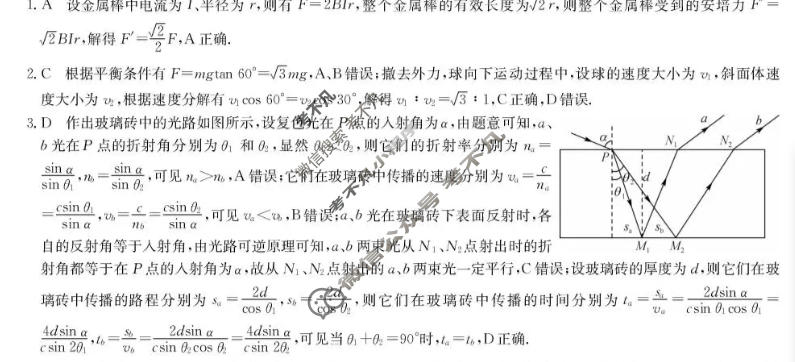 1. A 设金属棒中电流为 I、半径为 r,则有 F=2BIr,整个金属棒的有效长度为√2 r,则整个金属棒受到的安培力 F′=
√2BIr,解得 F′=√2/2 F,A 正确.
2. C 根据平衡条件有 F=mgtan 60°=√3mg,A、B错误;撤去外力,球向下运动过程中,设球的速度大小为 v₁,斜面体速
度大小为 v₂,根据速度分解有 v₁cos 60°=v₂cos 30°,解得 v₁∶v₂=√3∶1,C正确,D错误.
3. D 作出玻璃砖中的光路如图所示,设复色光在 P 点的入射角为α,由题意可知,a、
b 光在 P 点的折射角分别为 θ₁ 和 θ₂,显然 θ₁<θ₂,则它们的折射率分别为 nₐ=
sin α/sin θ₁,n_b=sin α/sin θ₂,可见 nₐ>n_b,A 错误;它们在玻璃砖中传播的速度分别为 vₐ=c/nₐ
=csin θ₁/sin α,v_b=c/n_b=csin θ₂/sin α,可见 vₐ<v_b,B错误;a、b 光在玻璃砖下表面反射时,各
自的反射角等于入射角,由光路可逆原理可知,a、b 两束光从 N₁、N₂点射出时的折
射角都等于在 P 点的入射角为α,故从 N₁、N₂点射出的 a、b 两束光一定平行,C 错误;设玻璃砖的厚度为 d,则它们在玻
璃砖中传播的路程分别为 sₐ=2d/cos θ₁,s_b=2d/cos θ₂,则它们在玻璃砖中传播的时间分别为 tₐ=sₐ/vₐ=2dsin α/csin θ₁cos θ₁=
4dsin α/csin 2θ₁,t_b=s_b/v_b=2dsin α/csin θ₂cos θ₂=4dsin α/csin 2θ₂,可见当 θ₁+θ₂=90°时,tₐ=t_b,D正确.
a
b
α
P
N₁
N₂
θ₂
d
θ₁
sₐ
s_b
M₁
M₂
考不凡
微信搜索 小程序
考不凡
微信公众号 考不凡